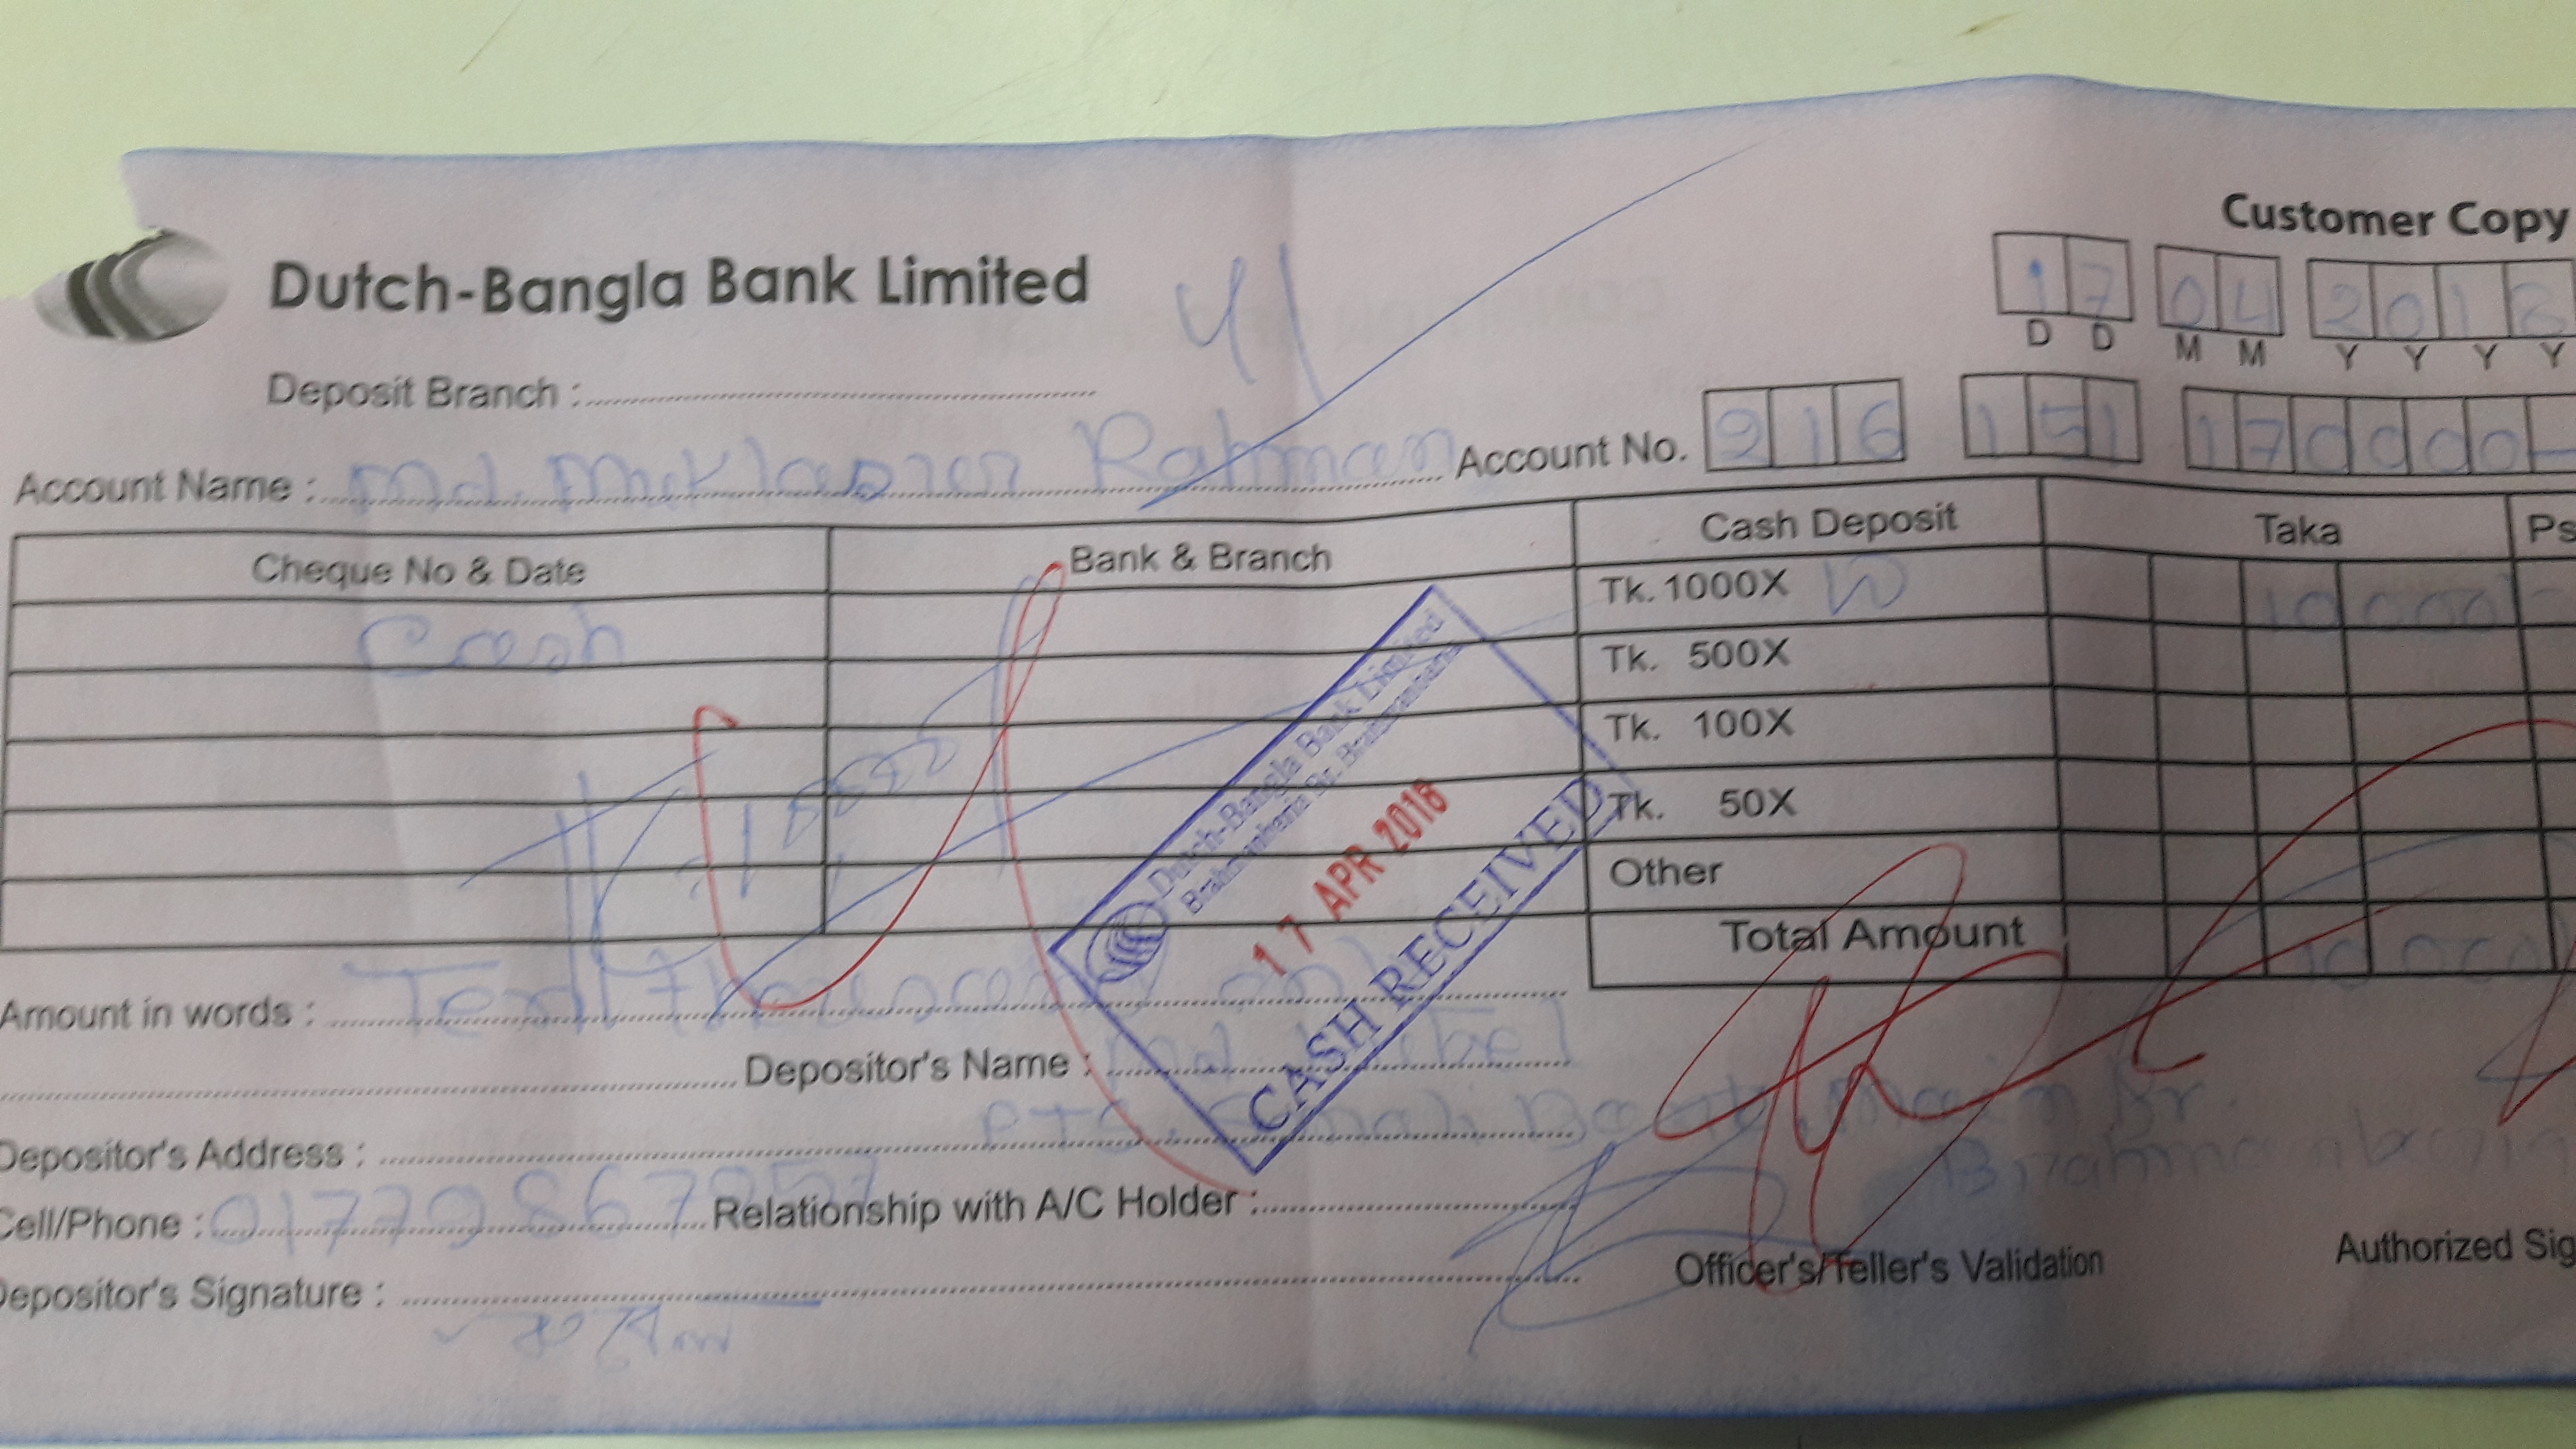 Customer Copy
Dutch-Bangla Bank Limited
41
17 04 2018
D D M M Y Y Y Y
Deposit Branch :
Account Name : Md. Rahman Account No. 216 151 170000
Cheque No & Date Bank & Branch Cash Deposit Taka Ps
Cash
Tk. 1000X 10 10000
Tk. 500X
Tk. 100X
Tk. 50X
Other
Total Amount 10000
Dutch-Bangla Bank Limited
Brahmanbaria Br. Brahmanbaria
17 APR 2018
CASH RECEIVED
Amount in words : Ten thousand only
Depositor's Name : Md.
Depositor's Address : Sonali Bank, Main Br.
Brahmanbaria
Cell/Phone : Relationship with A/C Holder :
Depositor's Signature :
Officer's/Teller's Validation
Authorized Sig